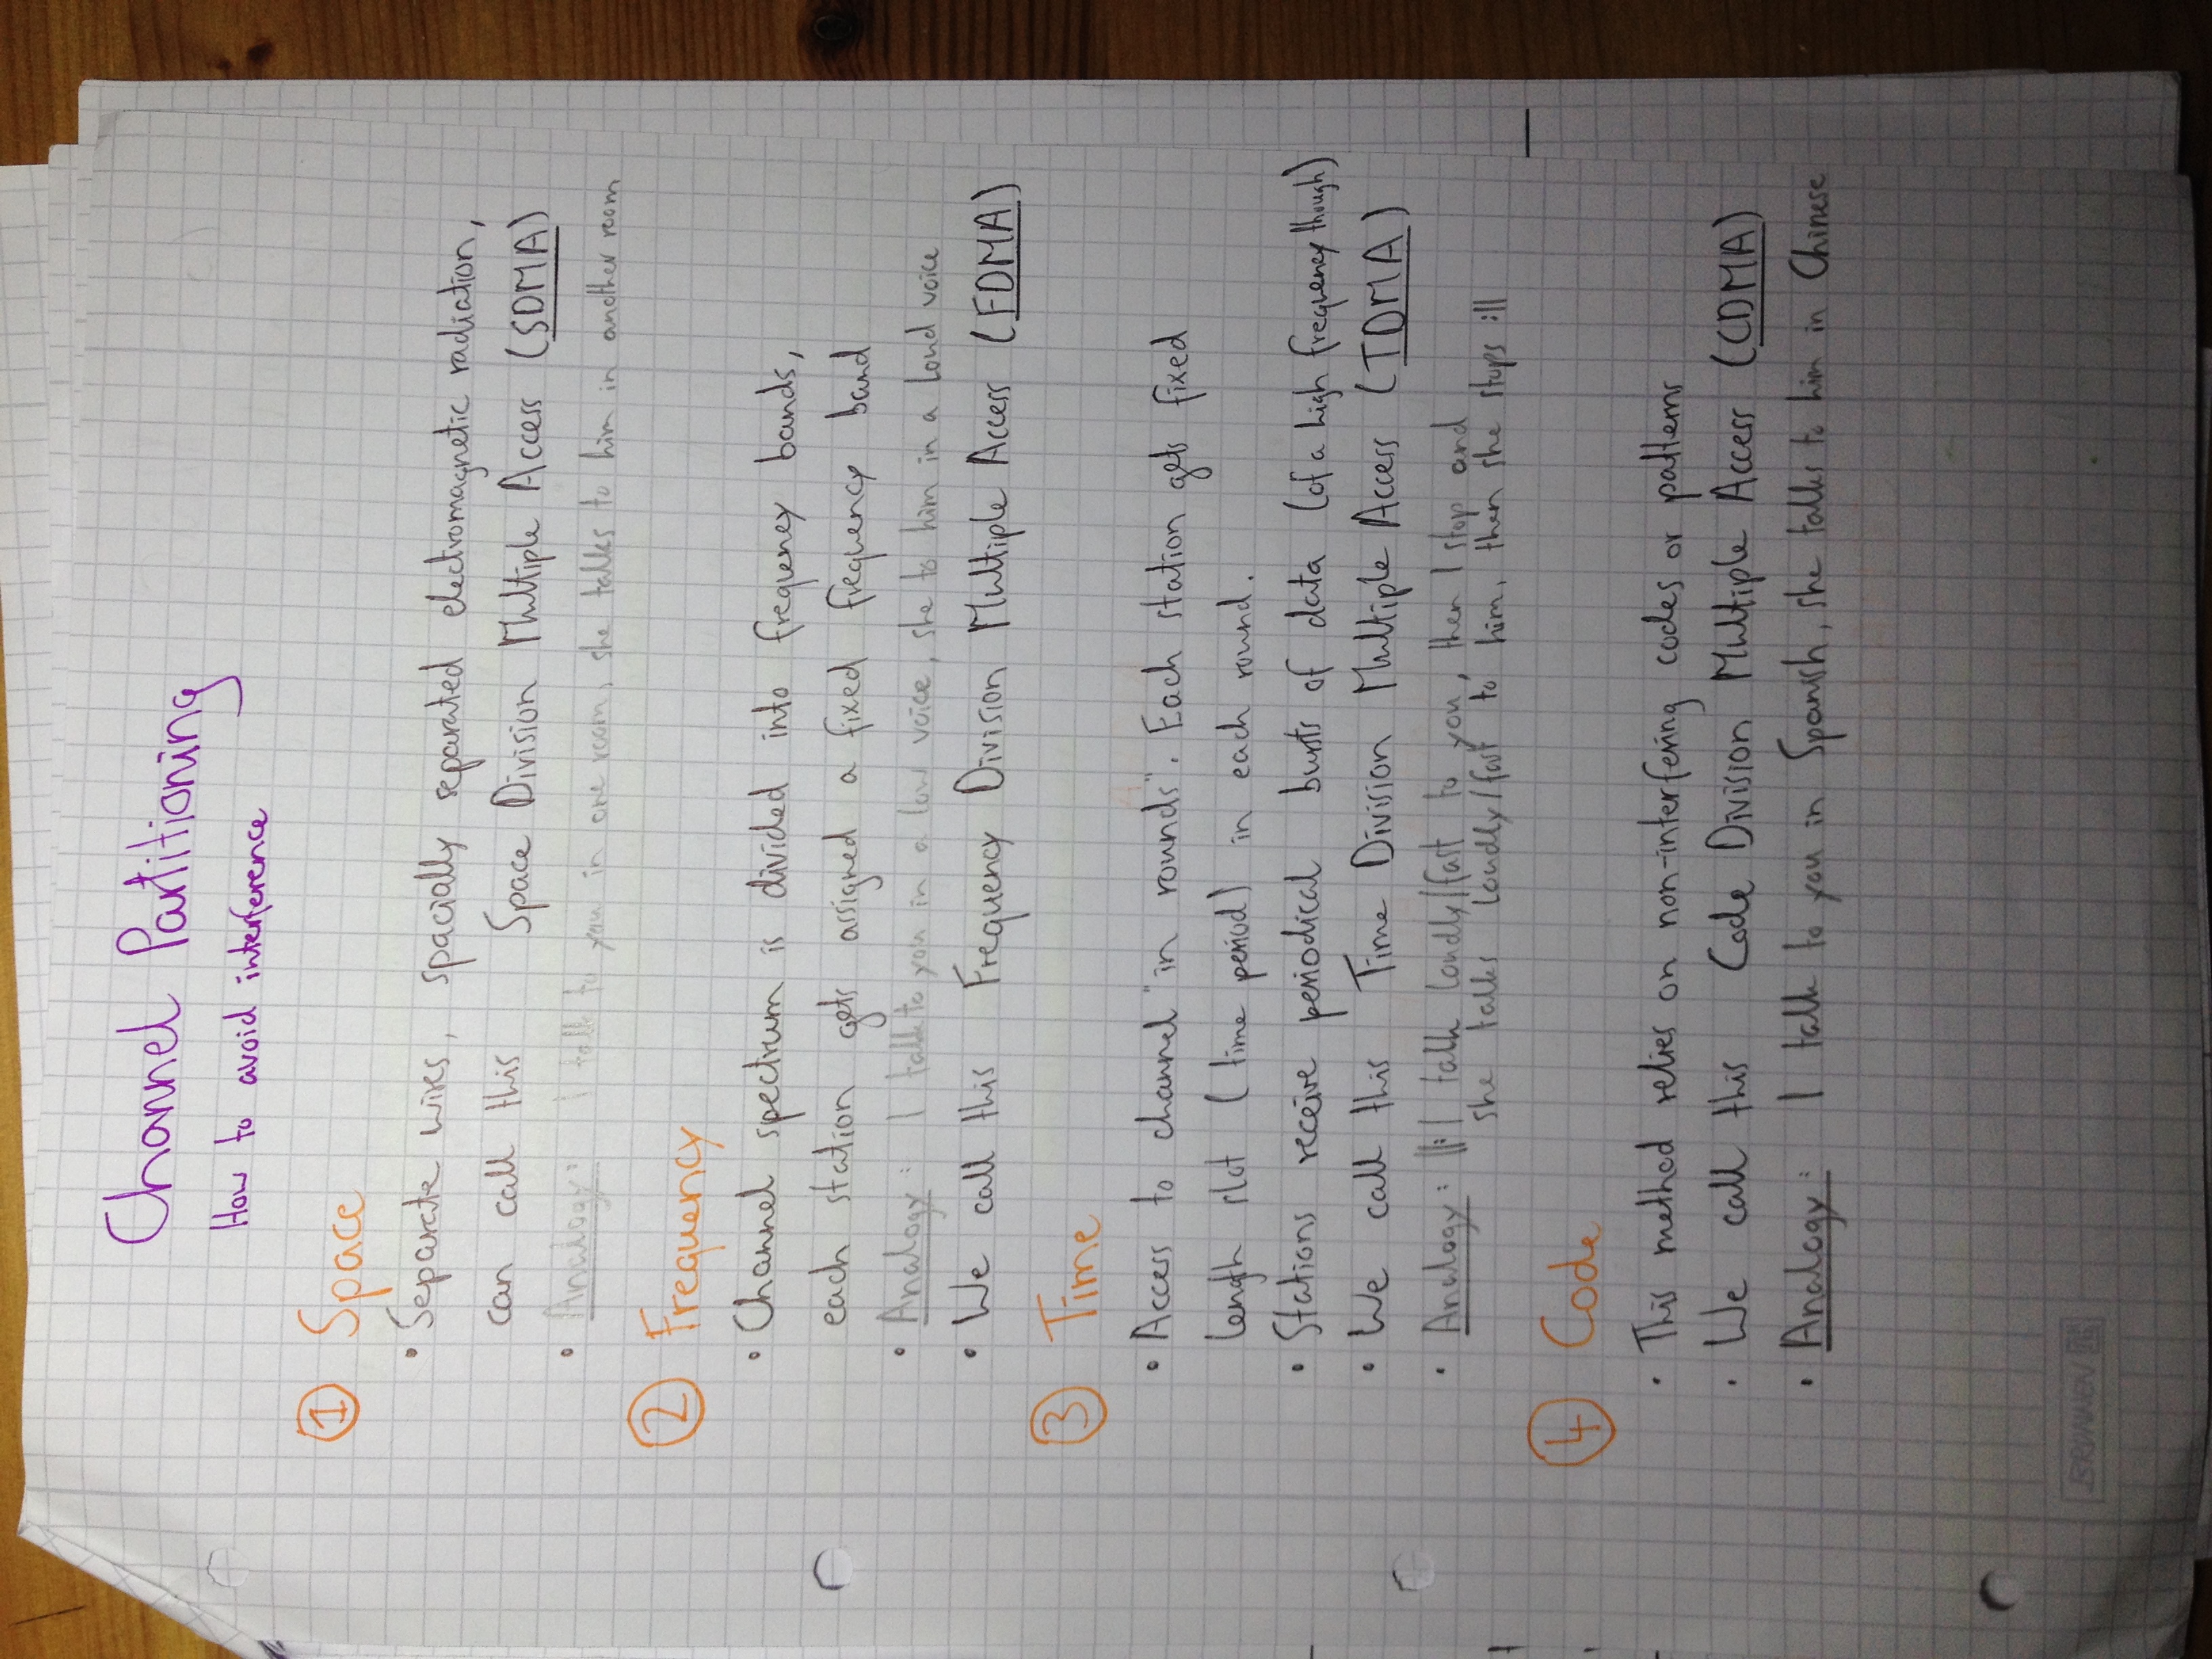 Channel Partitioning
How to avoid interference
① Space
• Separate wires, spacially separated electromagnetic radiation,
can call this Space Division Multiple Access (SDMA)
• Analogy: I talk to you in one room, she talks to him in another room
② Frequency
• Channel spectrum is divided into frequency bands,
each station gets assigned a fixed frequency band
• Analogy: I talk to you in a low voice, she to him in a loud voice
• We call this Frequency Division Multiple Access (FDMA)
③ Time
• Access to channel "in rounds". Each station gets fixed
length slot (time period) in each round.
• Stations receive periodical bursts of data (of a high frequency though)
• We call this Time Division Multiple Access (TDMA)
• Analogy: ||: I talk loudly/fast to you, then I stop and
she talks loudly/fast to him, then she stops :||
④ Code
• This method relies on non-interfering codes or patterns
• We call this Code Division Multiple Access (CDMA)
• Analogy: I talk to you in Spanish, she talks to him in Chinese
BRUNNEN